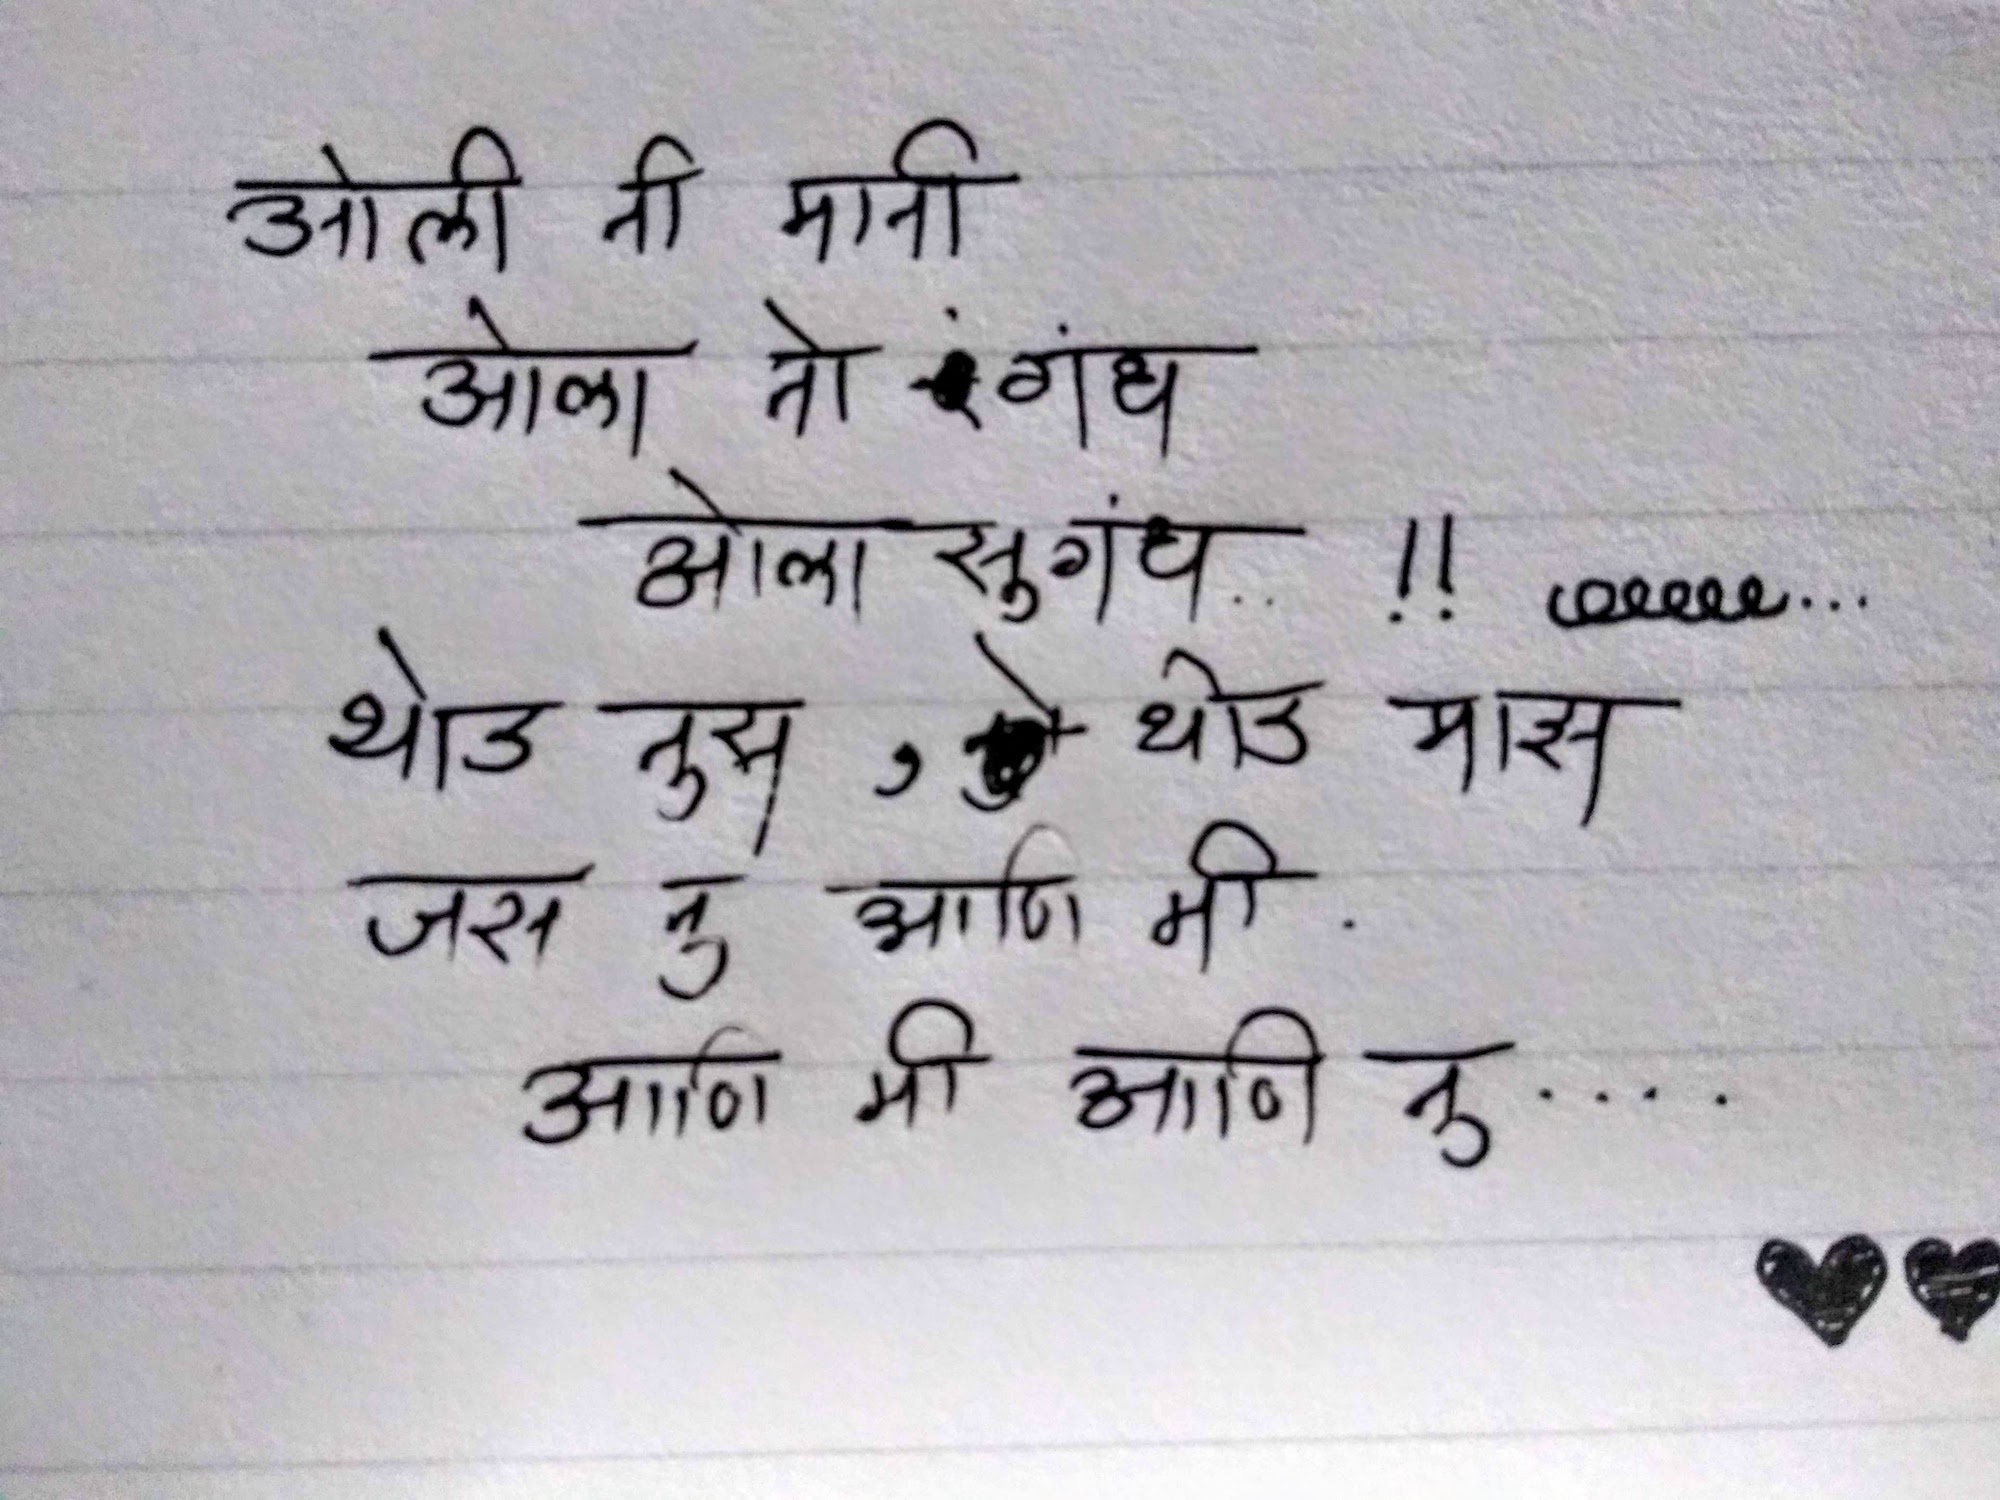 ओली ती माती
ओला तो रंगंध
ओला सुगंध.. !!
थोड तुझ , थोड माझ
जस तु आणि मी .
आणि मी आणि तु.....